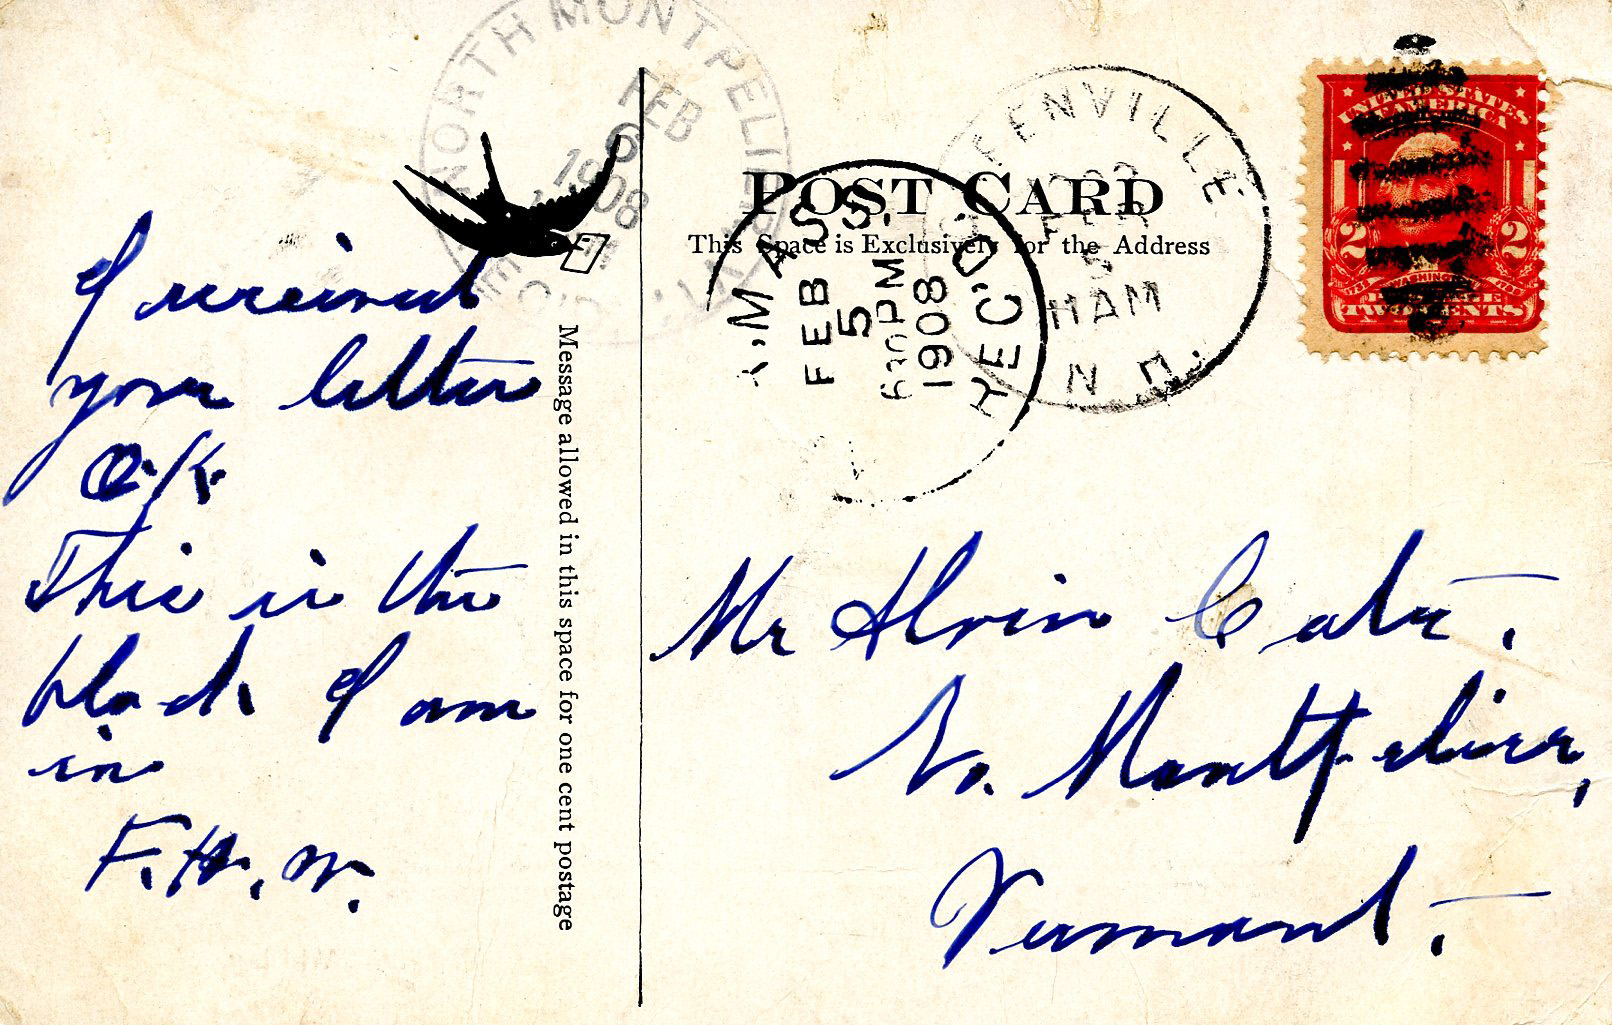 I received
your letter
O.K.
This is the
block I am
in
F. H. W.
Message allowed in this space for one cent postage
NORTH MONTPELIER
FEB
6
1908
POST CARD
This Space is Exclusively for the Address
MASS.
FEB
5
PM
1908
REC'D.
FEB
5
HAM
N.H.
UNITED STATES
OF AMERICA
2 2
WASHINGTON
TWO CENTS
Mr Alvin Cate.
No. Montpelier,
Vermont.